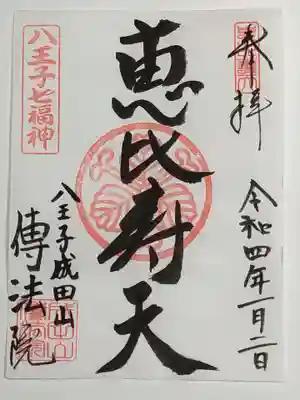 奉拝
令和四年一月二日
恵比寿天
八王子七福神
八王子成田山
傳法院